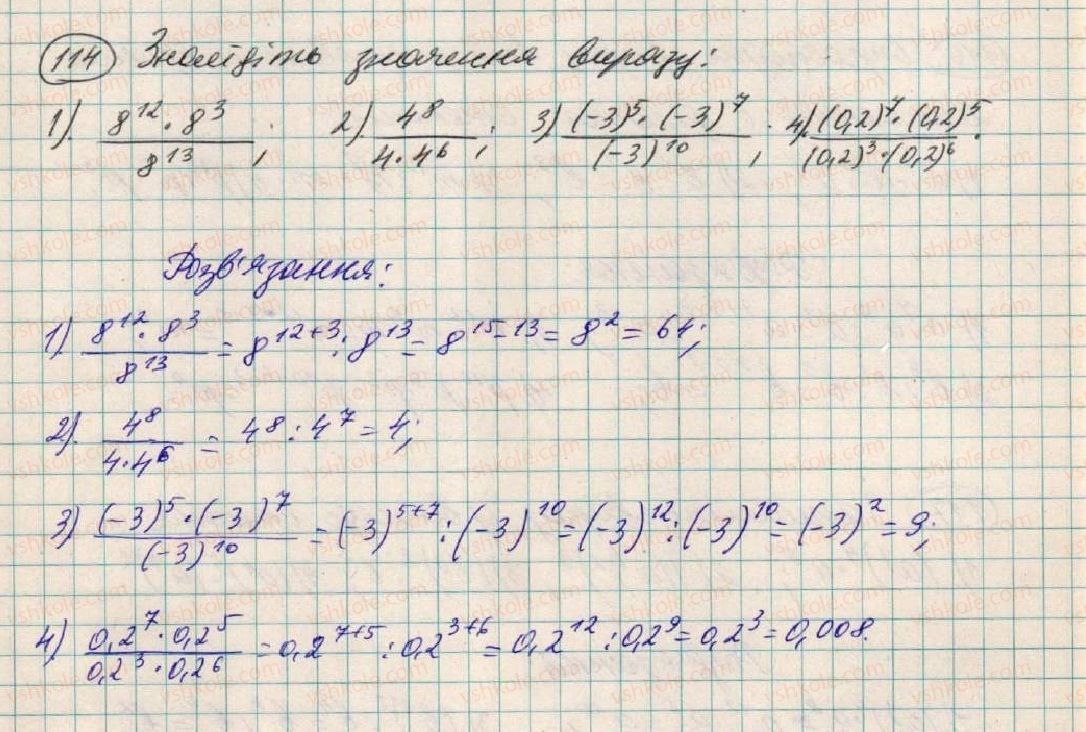 114 Знайдіть значення виразу:
1) 8^12 · 8^3 / 8^13; 2) 4^8 / 4·4^6; 3) (-3)^5 · (-3)^7 / (-3)^10; 4) (0,2)^7 · (0,2)^5 / (0,2)^3 · (0,2)^6.
Розв'язання:
1) 8^12 · 8^3 / 8^13 = 8^12+3 : 8^13 = 8^15-13 = 8^2 = 64;
2) 4^8 / 4·4^6 = 4^8 : 4^7 = 4;
3) (-3)^5 · (-3)^7 / (-3)^10 = (-3)^5+7 : (-3)^10 = (-3)^12 : (-3)^10 = (-3)^2 = 9;
4) 0,2^7 · 0,2^5 / 0,2^3 · 0,2^6 = 0,2^7+5 : 0,2^3+6 = 0,2^12 : 0,2^9 = 0,2^3 = 0,008.
vshkole.com